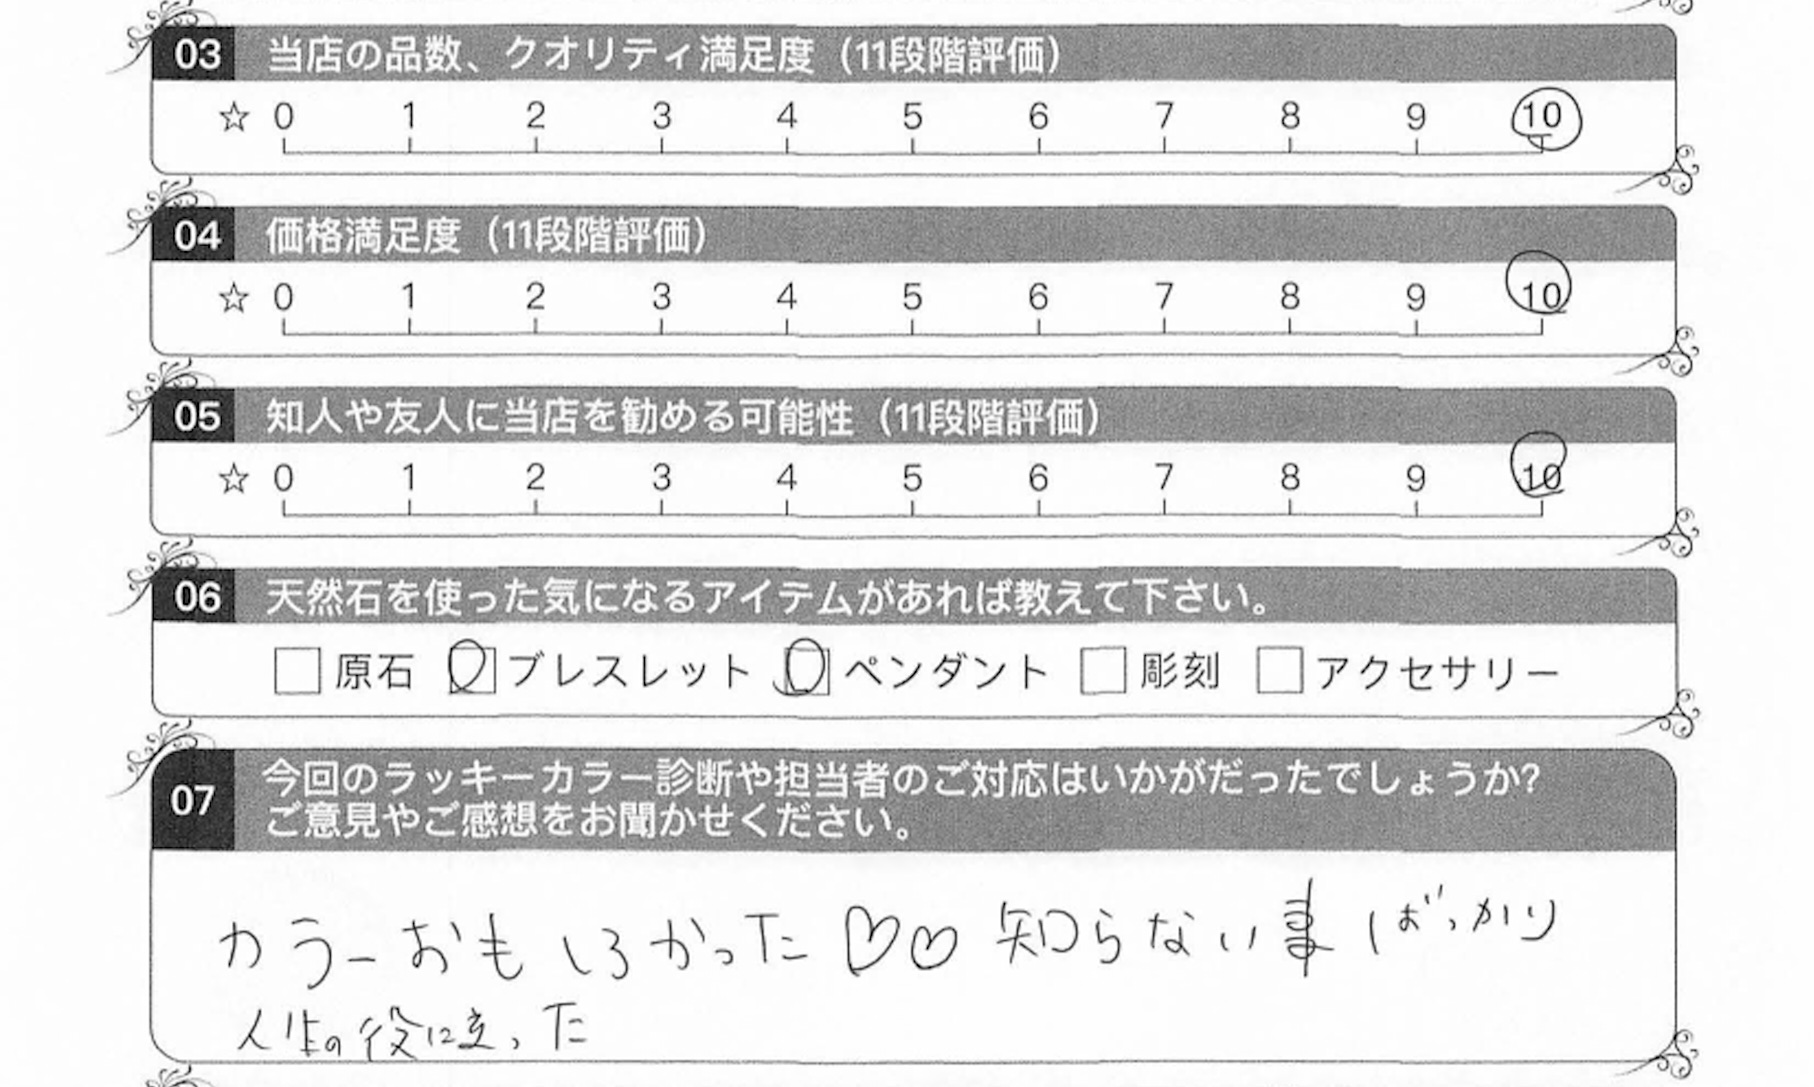 03 当店の品数、クオリティ満足度（11段階評価）
☆ 0 1 2 3 4 5 6 7 8 9 10
04 価格満足度（11段階評価）
☆ 0 1 2 3 4 5 6 7 8 9 10
05 知人や友人に当店を勧める可能性（11段階評価）
☆ 0 1 2 3 4 5 6 7 8 9 10
06 天然石を使った気になるアイテムがあれば教えて下さい。
□原石 □ブレスレット □ペンダント □彫刻 □アクセサリー
07 今回のラッキーカラー診断や担当者のご対応はいかがだったでしょうか?
ご意見やご感想をお聞かせください。
カラーおもしろかった♡♡ 知らない事ばっかり
人生の役に立った